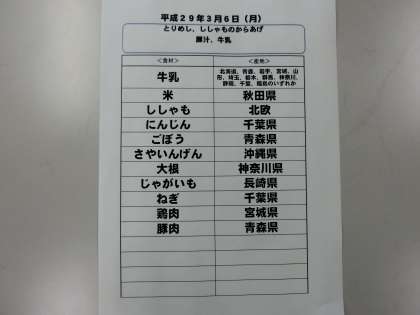 平成29年3月6日（月）
とりめし、ししゃものからあげ
豚汁、牛乳
＜食材＞ ＜産地＞
牛乳 北海道、青森、岩手、宮城、山形、埼玉、栃木、群馬、神奈川、静岡、千葉、 のいずれか
米 秋田県
ししゃも 北欧
にんじん 千葉県
ごぼう 青森県
さやいんげん 沖縄県
大根 神奈川県
じゃがいも 長崎県
ねぎ 千葉県
鶏肉 宮城県
豚肉 青森県